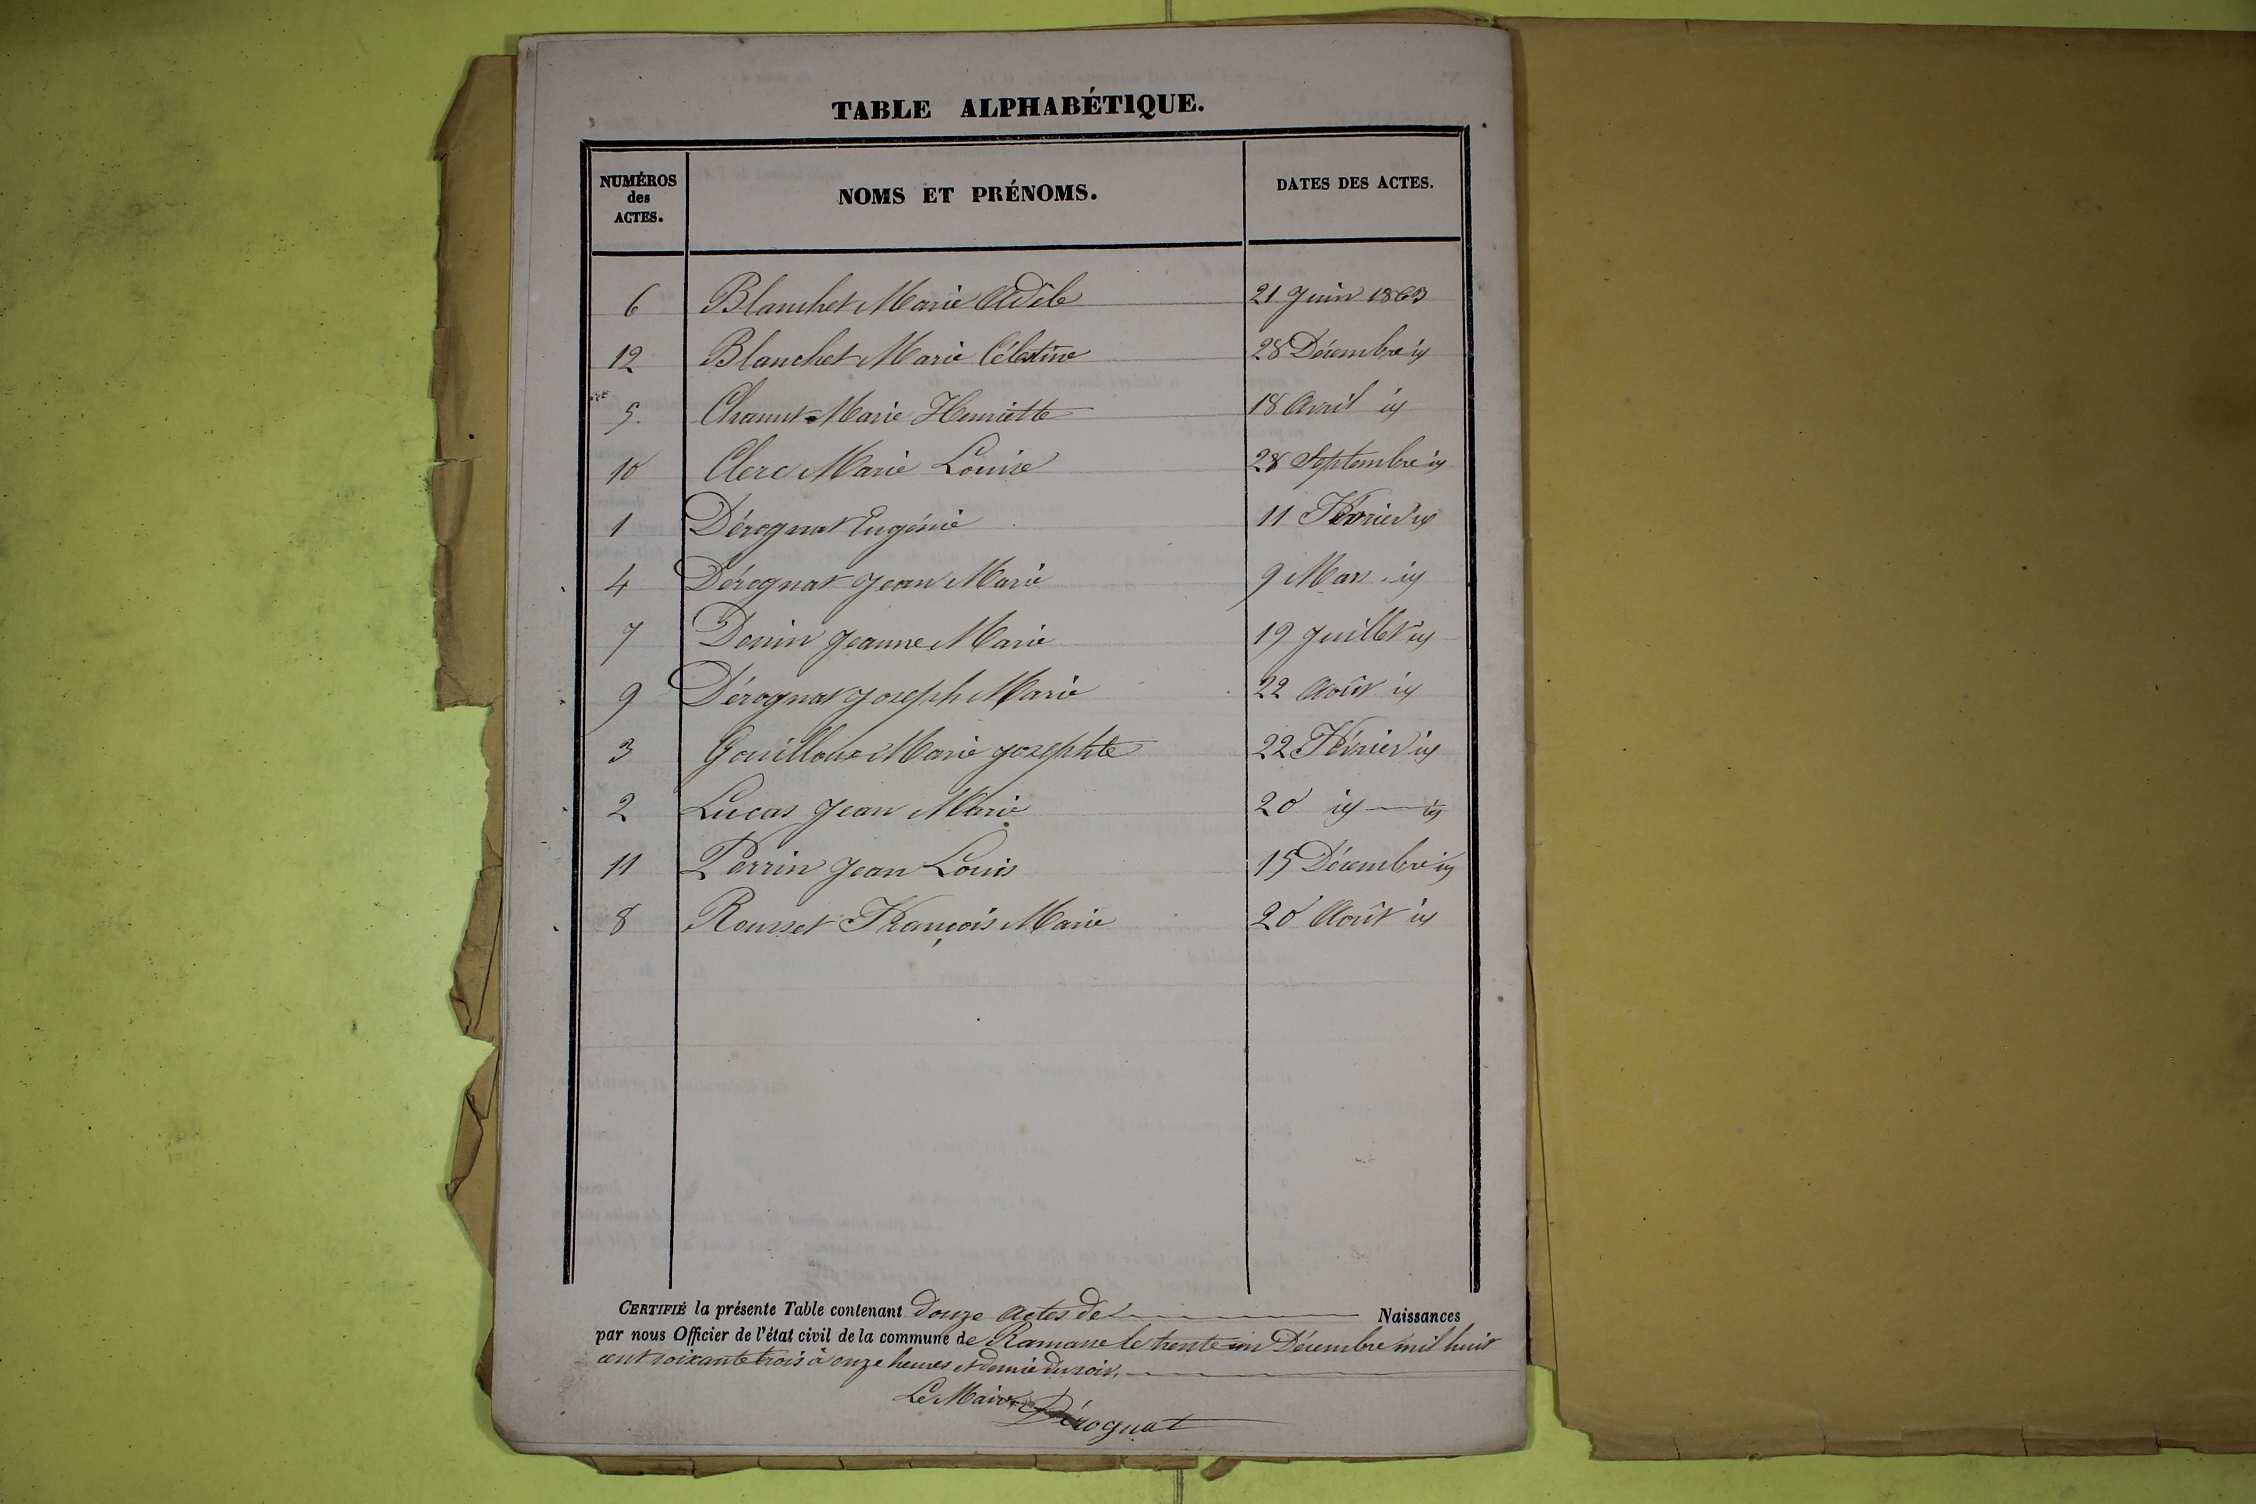 TABLE ALPHABÉTIQUE.
NUMÉROS des ACTES. NOMS ET PRÉNOMS. DATES DES ACTES.
6 Blanchet Marie Adèle 21 Juin 1863
12 Blanchet Marie Célestine 28 Décembre id
5. Chanut Marie Henriette 18 Avril id
10 Clerc Marie Louise 28 Septembre id
1 Dérognat Eugénie 11 Février id
4 Dérognat Jean Marie 9 Mars id
7 Donin Jeanne Marie 19 Juillet id
9 Dérognat Joseph Marie 22 Août id
3 Gouilloux Marie Josephte 22 Février id
2 Lucas Jean Marie 20 id — id
11 Perrin Jean Louis 15 Décembre id
8 Rousset François Marie 20 Août id
CERTIFIÉ la présente Table contenant douze Actes de — Naissances
par nous Officier de l'état civil de la commune de Ramasse le trente un Décembre mil huit
cent soixante trois à onze heures et demie du soir. —
Le Maire Dérognat